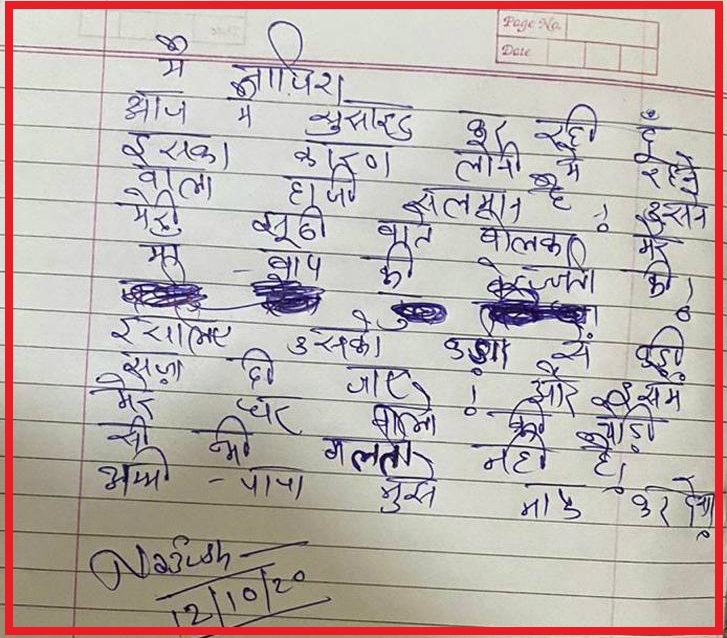 Page No.
Date
मै नाज़िश
आज मै सुसाइड कर रही हूँ
इसका कारण लोनी मे रहने
वाला हाजी सलमान है ! उसने
मेरी झूठी बात बोलकर मेरे
माँ - बाप की बेइज्जती की !
इसलिए उसको कड़ी से कड़ी
सज़ा दी जाए ! और इसमे
मेरे घर वालो की थोड़ी
सी भी गलती नही है !
अम्मी - पापा मुझे माफ कर देना
Nazish
12/10/20